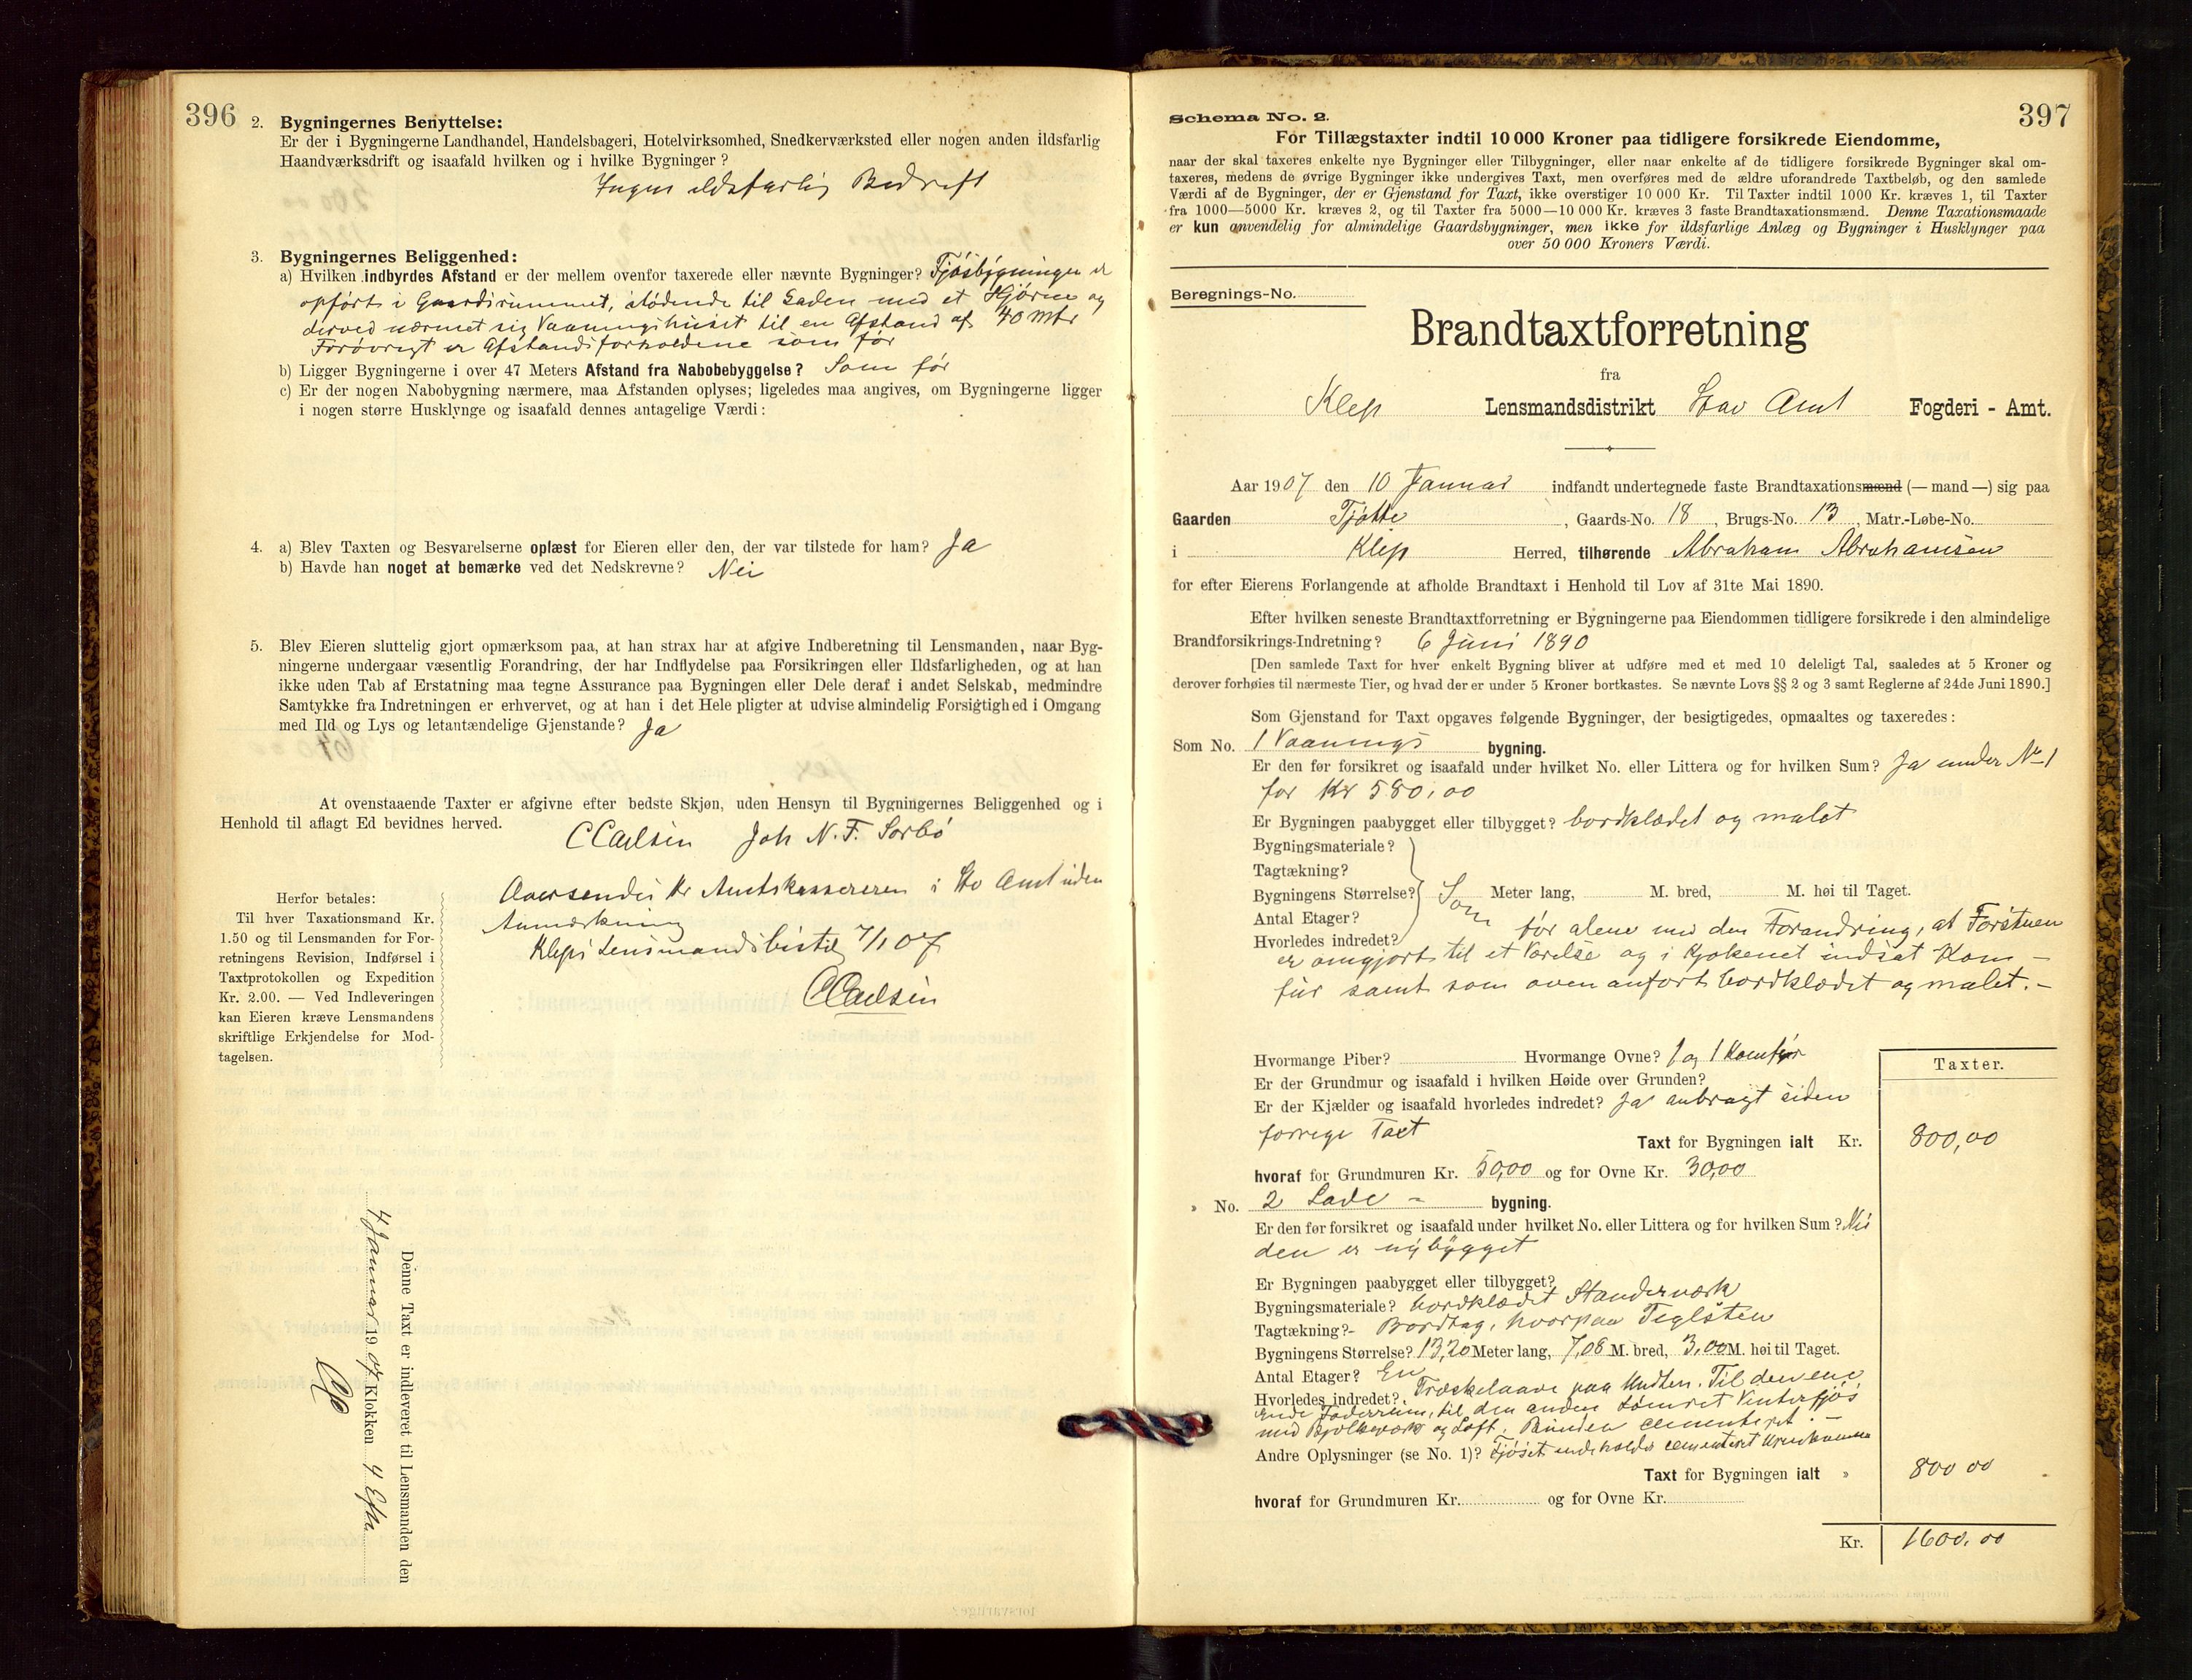 396
2. Bygningernes Benyttelse:
Er der i Bygningerne Landhandel, Handelsbageri, Hotelvirksomhed, Snedkerværksted eller nogen anden ildsfarlig
Haandværksdrift og isaafald hvilken og i hvilke Bygninger?
Ingen ildsfarlig Bedrift
3. Bygningernes Beliggenhed:
a) Hvilken indbyrdes Afstand er der mellem ovenfor taxerede eller nævnte Bygninger? Fjøsbygningen er
opført i Gaardsrummet, stødende til Laden med et Hjørne og
derved nærmet sig Vaaningshuset til en Afstand af 40 Mtr
Forøvrigt er Afstandsforholdene som før
b) Ligger Bygningerne i over 47 Meters Afstand fra Nabobebyggelse? Som før
c) Er der nogen Nabobygning nærmere, maa Afstanden oplyses; ligeledes maa angives, om Bygningerne ligger
i nogen større Husklynge og isaafald dennes antagelige Værdi:
4. a) Blev Taxten og Besvarelserne oplæst for Eieren eller den, der var tilstede for ham? Ja
b) Havde han noget at bemærke ved det Nedskrevne? Nei
5. Blev Eieren sluttelig gjort opmærksom paa, at han strax har at afgive Indberetning til Lensmanden, naar Byg-
ningerne undergaar væsentlig Forandring, der har Indflydelse paa Forsikringen eller Ildsfarligheden, og at han
ikke uden Tab af Erstatning maa tegne Assurance paa Bygningen eller Dele deraf i andet Selskab, medmindre
Samtykke fra Indretningen er erhvervet, og at han i det Hele pligter at udvise almindelig Forsigtighed i Omgang
med Ild og Lys og letantændelige Gjenstande? Ja
At ovenstaaende Taxter er afgivne efter bedste Skjøn, uden Hensyn til Bygningernes Beliggenhed og i
Henhold til aflagt Ed bevidnes herved.
CCarlsen Joh N. F. Sorbø
Oversendes Hr Amtskassereren i Stv Amt uden
Anmærkning
Klep Lensmandsbestil 7/1 07
CCarlsen
Herfor betales:
Til hver Taxationsmand Kr.
1.50 og til Lensmanden for For-
retningens Revision, Indførsel i
Taxtprotokollen og Expedition
Kr. 2.00. — Ved Indleveringen
kan Eieren kræve Lensmandens
skriftlige Erkjendelse for Mod-
tagelsen.
Denne Taxt er indleveret til Lensmanden den
4 Januar 1907 Klokken 4 Eftm
397
Schema No. 2.
For Tillægstaxter indtil 10 000 Kroner paa tidligere forsikrede Eiendomme,
naar der skal taxeres enkelte nye Bygninger eller Tilbygninger, eller naar enkelte af de tidligere forsikrede Bygninger skal om-
taxeres, medens de øvrige Bygninger ikke undergives Taxt, men overføres med de ældre uforandrede Taxtbeløb, og den samlede
Værdi af de Bygninger, der er Gjenstand for Taxt, ikke overstiger 10 000 Kr. Til Taxter indtil 1000 Kr. kræves 1, til Taxter
fra 1000—5000 Kr. kræves 2, og til Taxter fra 5000—10 000 Kr. kræves 3 faste Brandtaxationsmænd. Denne Taxationsmaade
er kun anvendelig for almindelige Gaardsbygninger, men ikke for ildsfarlige Anlæg og Bygninger i Husklynger paa
over 50 000 Kroners Værdi.
Beregnings-No.
Brandtaxtforretning
fra
Klep Lensmandsdistrikt Stav Amt Fogderi - Amt.
Aar 1907 den 10 Januar indfandt undertegnede faste Brandtaxationsmænd (— mand —) sig paa
Gaarden Tjøtte, Gaards-No. 18, Brugs-No. 13, Matr.-Løbe-No.
i Klep Herred, tilhørende Abraham Abrahamsen
for efter Eierens Forlangende at afholde Brandtaxt i Henhold til Lov af 31te Mai 1890.
Efter hvilken seneste Brandtaxtforretning er Bygningerne paa Eiendommen tidligere forsikrede i den almindelige
Brandforsikrings-Indretning? 6 Juni 1890
[Den samlede Taxt for hver enkelt Bygning bliver at udføre med et med 10 deleligt Tal, saaledes at 5 Kroner og
derover forhøies til nærmeste Tier, og hvad der er under 5 Kroner bortkastes. Se nævnte Lovs §§ 2 og 3 samt Reglerne af 24de Juni 1890.]
Som Gjenstand for Taxt opgaves følgende Bygninger, der besigtigedes, opmaaltes og taxeredes:
Som No. 1 Vaanings bygning.
Er den før forsikret og isaafald under hvilket No. eller Littera og for hvilken Sum? Ja under No 1
for Kr 580,00
Er Bygningen paabygget eller tilbygget? bordklædet og malet
Bygningsmateriale?
Tagtækning?
Bygningens Størrelse? Meter lang, M. bred, M. høi til Taget.
Antal Etager? Som før alene med den Forandring, at Forstuen
Hvorledes indredet?
er omgjort til et Værelse og i Kjøkenet indsat Kom-
fur samt som oven anført bordklædet og malet.-
Hvormange Piber? Hvormange Ovne? 1 og 1 Komfur
Taxter.
Er der Grundmur og isaafald i hvilken Høide over Grunden?
Er der Kjælder og isaafald hvorledes indredet? Ja anbragt siden
forrige Taxt Taxt for Bygningen ialt Kr. 800,00
hvoraf for Grundmuren Kr. 50,00 og for Ovne Kr. 30,00
» No. 2 Lade - bygning.
Er den før forsikret og isaafald under hvilket No. eller Littera og for hvilken Sum? Nei
den er nybygget
Er Bygningen paabygget eller tilbygget?
Bygningsmateriale? bordklædet Standerværk
Tagtækning?- Bordtag, hvorpaa Teglsten
Bygningens Størrelse? 13,20 Meter lang, 7,08 M. bred, 3,00 M. høi til Taget.
Antal Etager? En
Hvorledes indredet? Træskelaave paa Midten. Til den ene
Ende Foderrum, til den anden tømret Vinterfjøs
med Bjelkeværk og Loft, Bunden cementeret. —
Andre Oplysninger (se No. 1)? Fjøset indeholder cementeret
Taxt for Bygningen ialt » 800 00
hvoraf for Grundmuren Kr. og for Ovne Kr.
Kr. 1600,00